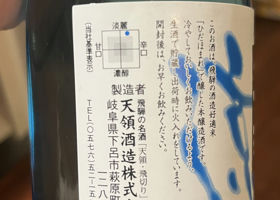 このお酒は、飛騨の酒造好適米
「ひだほまれ」で醸した本醸造酒です。
冷やしておいしくお飲みいただけるよう、
生酒で貯蔵し出荷時に火入れをしています。
開封後は、お早くお飲みください。
淡麗
辛口
甘口
濃醇
(当社基準表示)
製造者
飛騨の名酒「天領・飛切り」
天領酒造株式会
岐阜県下呂市萩原町
TEL(〇五七六)五二-一五